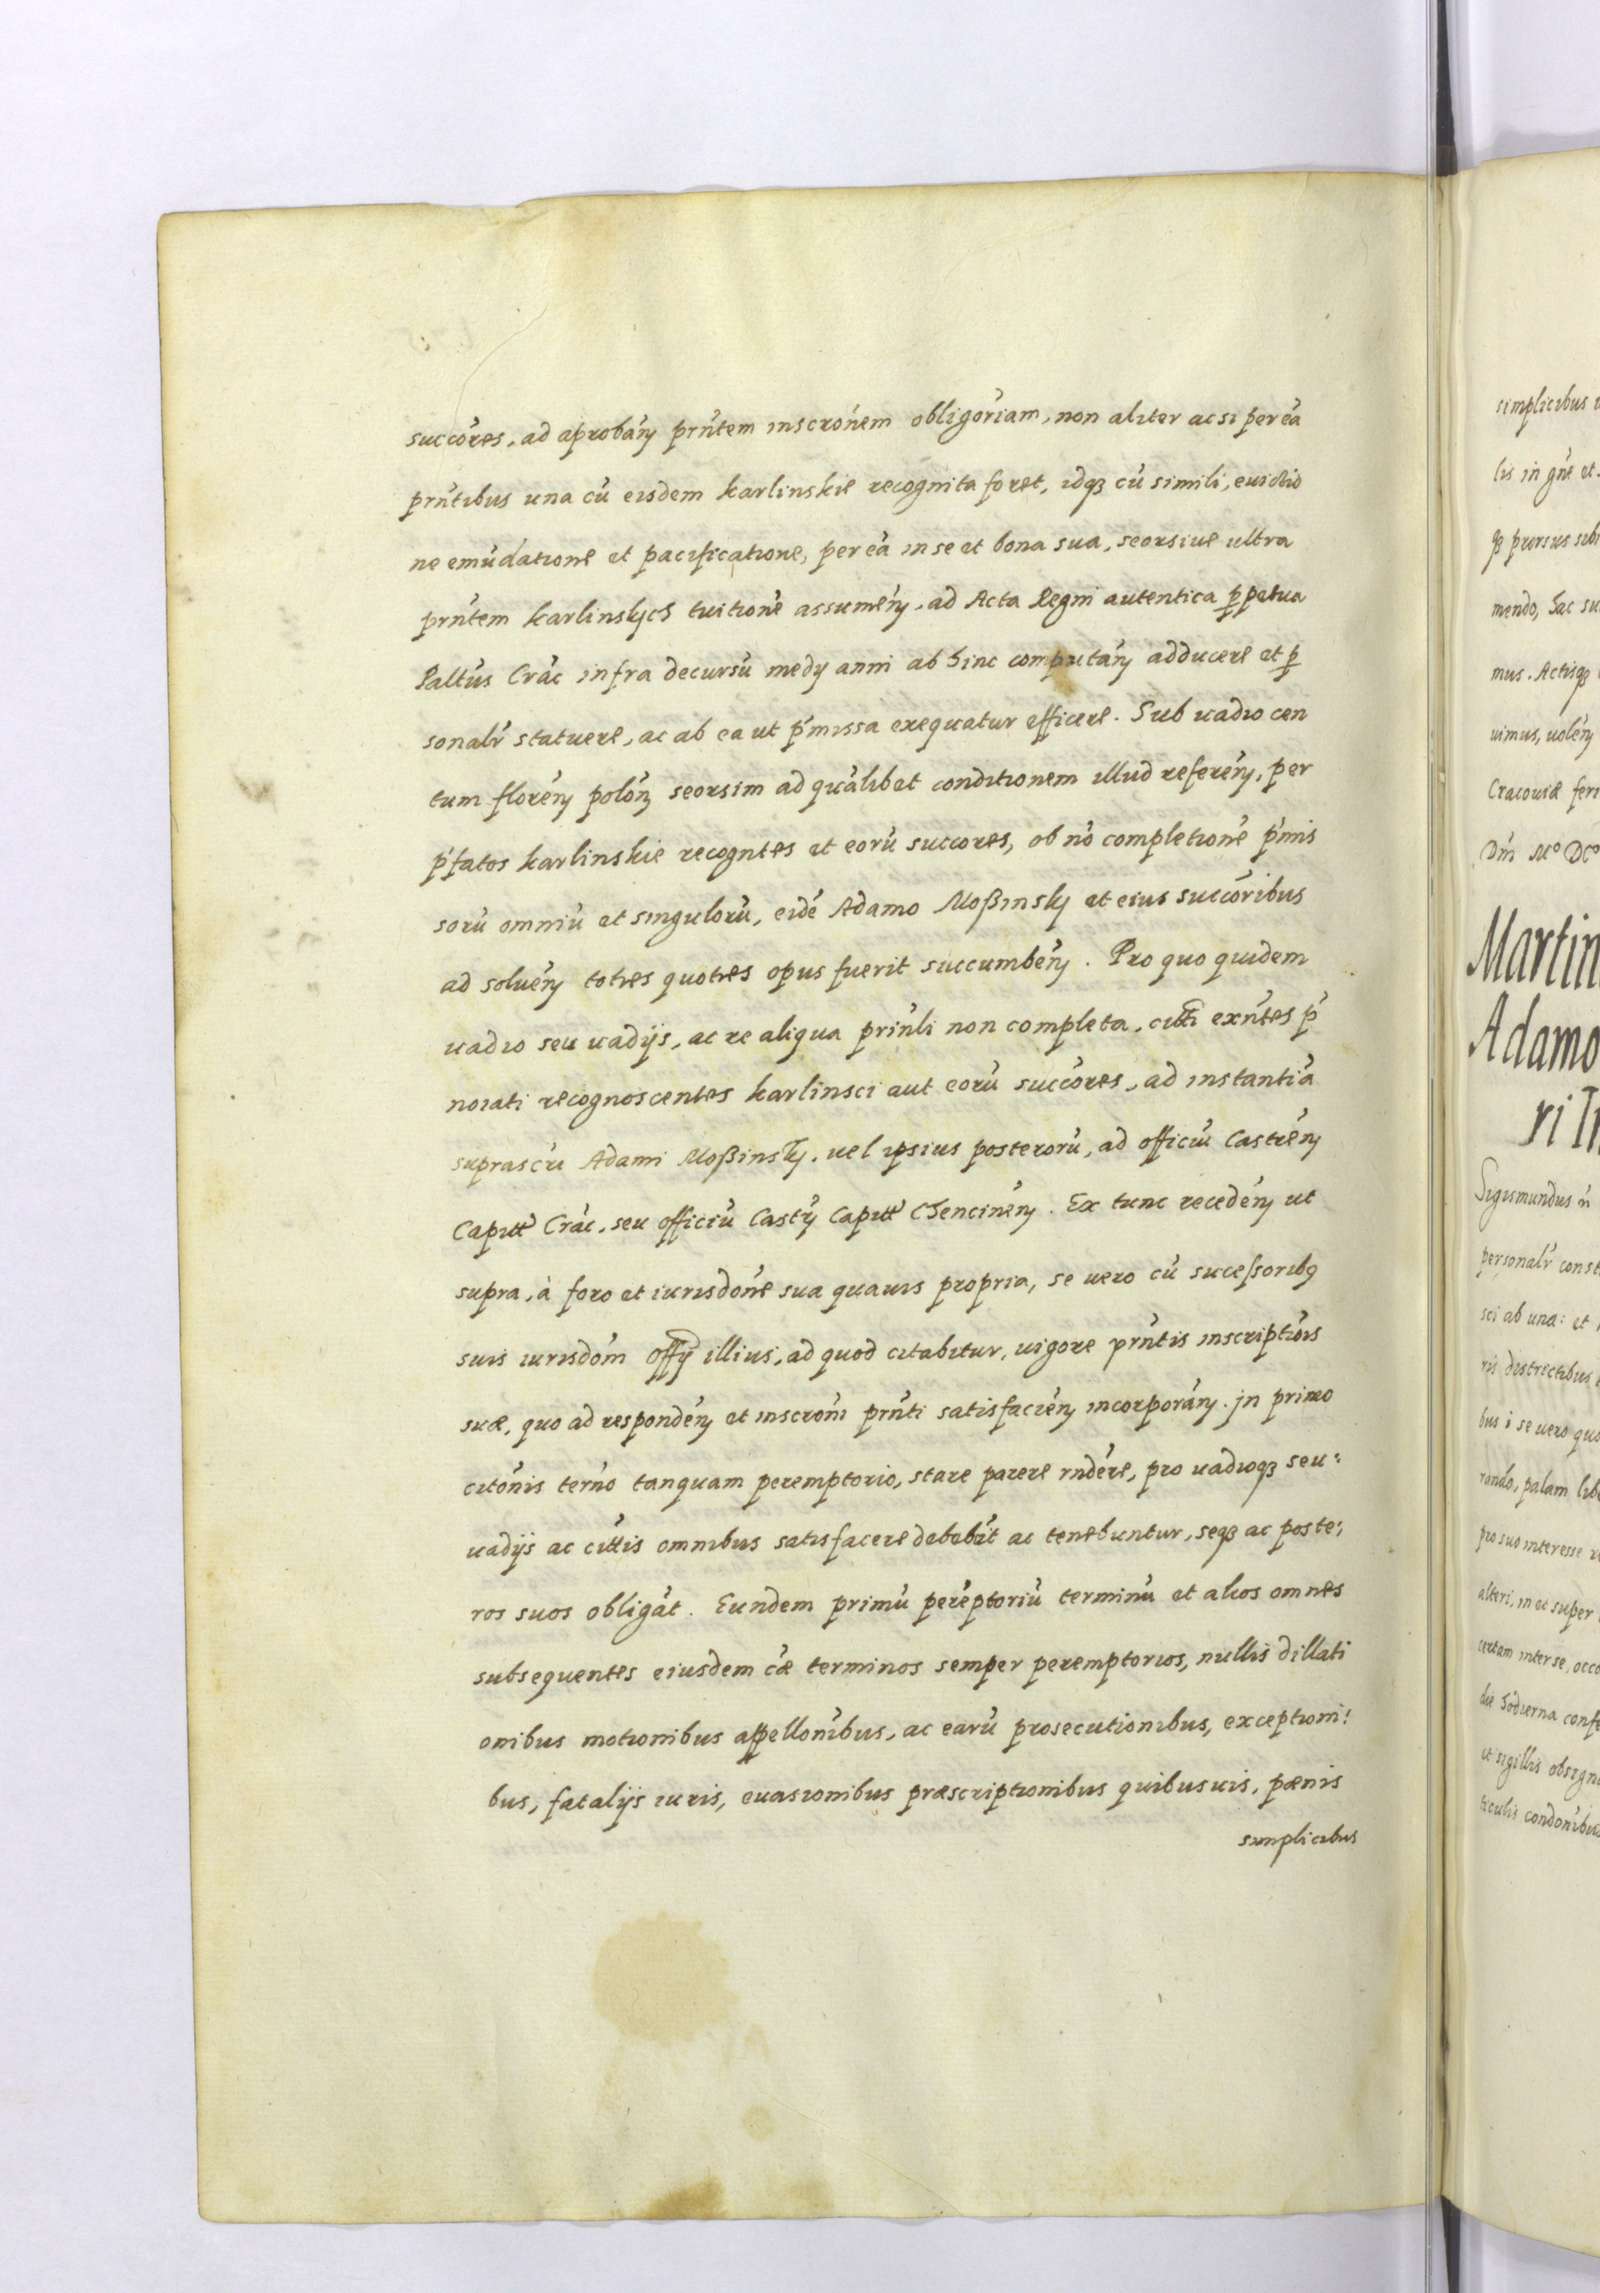 succo͞res, ad aproba͞nȷ prn͞tem inscro͞nem obligo͞riam, non aliter ac si per ea͞
prn͞tibus una cu͞ eisdem Karlinskie recognita foret, idqꝫ cu͞ simili, euictio
ne emu͞datione et pacificatione, per ea͞ in se et bona sua, seorsiue ultra
prn͞tem Karlinskych tuitione͞ assume͞nȷ, ad Acta Regni autentica ꝑpetua
Paltu͞s Cra͞c infra decursu͞ medÿ anni ab hinc computa͞nȷ adducere et ꝑ
sonalr͞ statuere, ac ab ea ut p͞missa exequatur efficere. Sub uadio cen
tum flore͞nȷ polo͞nȷ seorsim ad qua͞libet conditionem illud refere͞nȷ, per
p͞fatos Karlinskie recogntes et eoru͞ succores, ob no͞ completione͞ p͞mis
soru͞ omniu͞ et singuloru͞, eide͞ Adamo Moßinsky et eius succo͞ribus
ad solue͞nȷ toties quoties opus fuerit succumbe͞nȷ. Pro quo quidem
uadio seu uadijs, ac re aliqua prin͞li non completa, citti͞ exn͞tes p͞
noiati recognoscentes Karlinsci aut eoru͞ succo͞res, ad instantia͞
suprascri͞ Adami Moßinsky, uel ipsius posteroru͞, ad officiu͞ Castre͞nȷ
Capitt͞ Cra͞c, seu officiu͞ Castr͞ȷ Capitt͞ Chencine͞nȷ. Ex tunc recede͞nȷ ut
supra, à foro et iurisdo͞ne sua quauis propria, se uero cu͞ sucessoribꝫ
suis iurisdo͞m offÿ illius, ad quod citabitur, uigore prn͞tis inscriptio͞is
suæ, quo ad responde͞nȷ et inscro͞ni prn͞ti satisfacie͞nȷ incorpora͞nȷ. In primo
cito͞nis terno͞ tanquam peremptorio, stare parere rnde͞re, pro uadioqꝫ seu:
uadijs ac citt͞is omnibus satisfacere debebu͞t ac tenebuntur, seqꝫ ac poste:
ros suos obliga͞t. Eundem primu͞ pere͞ptoriu͞ terminu͞ et alios omnes
subsequentes eiusdem ca͞e terminos semper peremptorios, nullis dillati
onibus motionibus appello͞nibus, ac earu͞ prosecutionibus, exceptioni:
bus, fatalijs iuris, euasionibus præscriptionibus quibusuis, pænis
simplicibus
simplicibus
lis in gn͞e et
qꝫ prorsus sibi
mendo, hac su
mus. Actisqꝫ
uimus, uole͞nȷ
Cracouiæ feri
Dn͞i M° DC°
Martin
Adamo
ri In
Sigismundus
personalr͞ const
sci ab una: et
ris districtibus
bus i se uero quo
rando, palam libe
pro suo interesse
alteri, in et super
certam inter se, occa
die hodierna confe
et sigillis obsign
ticulis condo͞nibus